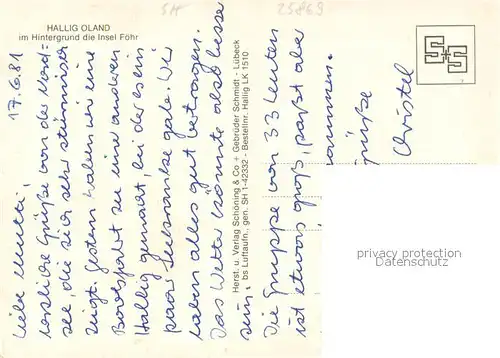 HALLIG OLAND
im Hintergrund die Insel Föhr
5H
25869
17.6.81
Liebe Mutti,
herzliche Grüße von der Nord-
see, die sich sehr stürmisch
zeigt. Gestern haben wir eine
Bootsfahrt zu einer anderen
Hallig gemacht, bei der es ein
paar Seekranke gab. Wir
haben alles gut betragen.
Das Wetter könnte also besser
sein.
Herst. u. Verlag Schöning & Co + Gebrüder Schmidt - Lübeck
bs Luftaufn., gen. SH 1-42332 - Bestellnr. Hallig LK 1510
Die Gruppe von 33 Leuten
ist etwas groß, paßt aber
zusammen.
Grüße
Christel
privacy protection
Datenschutz